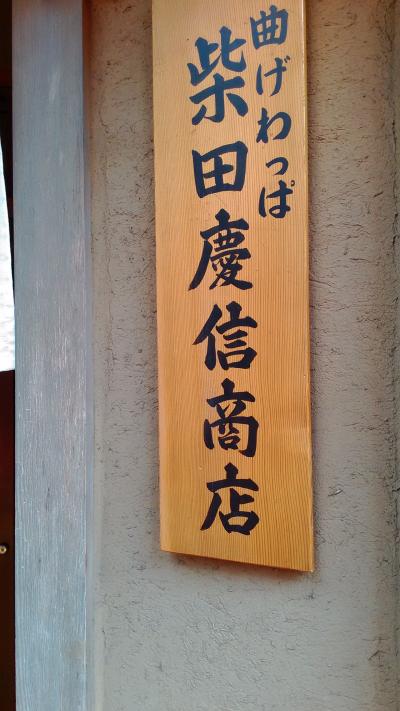 曲げわっぱ
柴田慶信商店